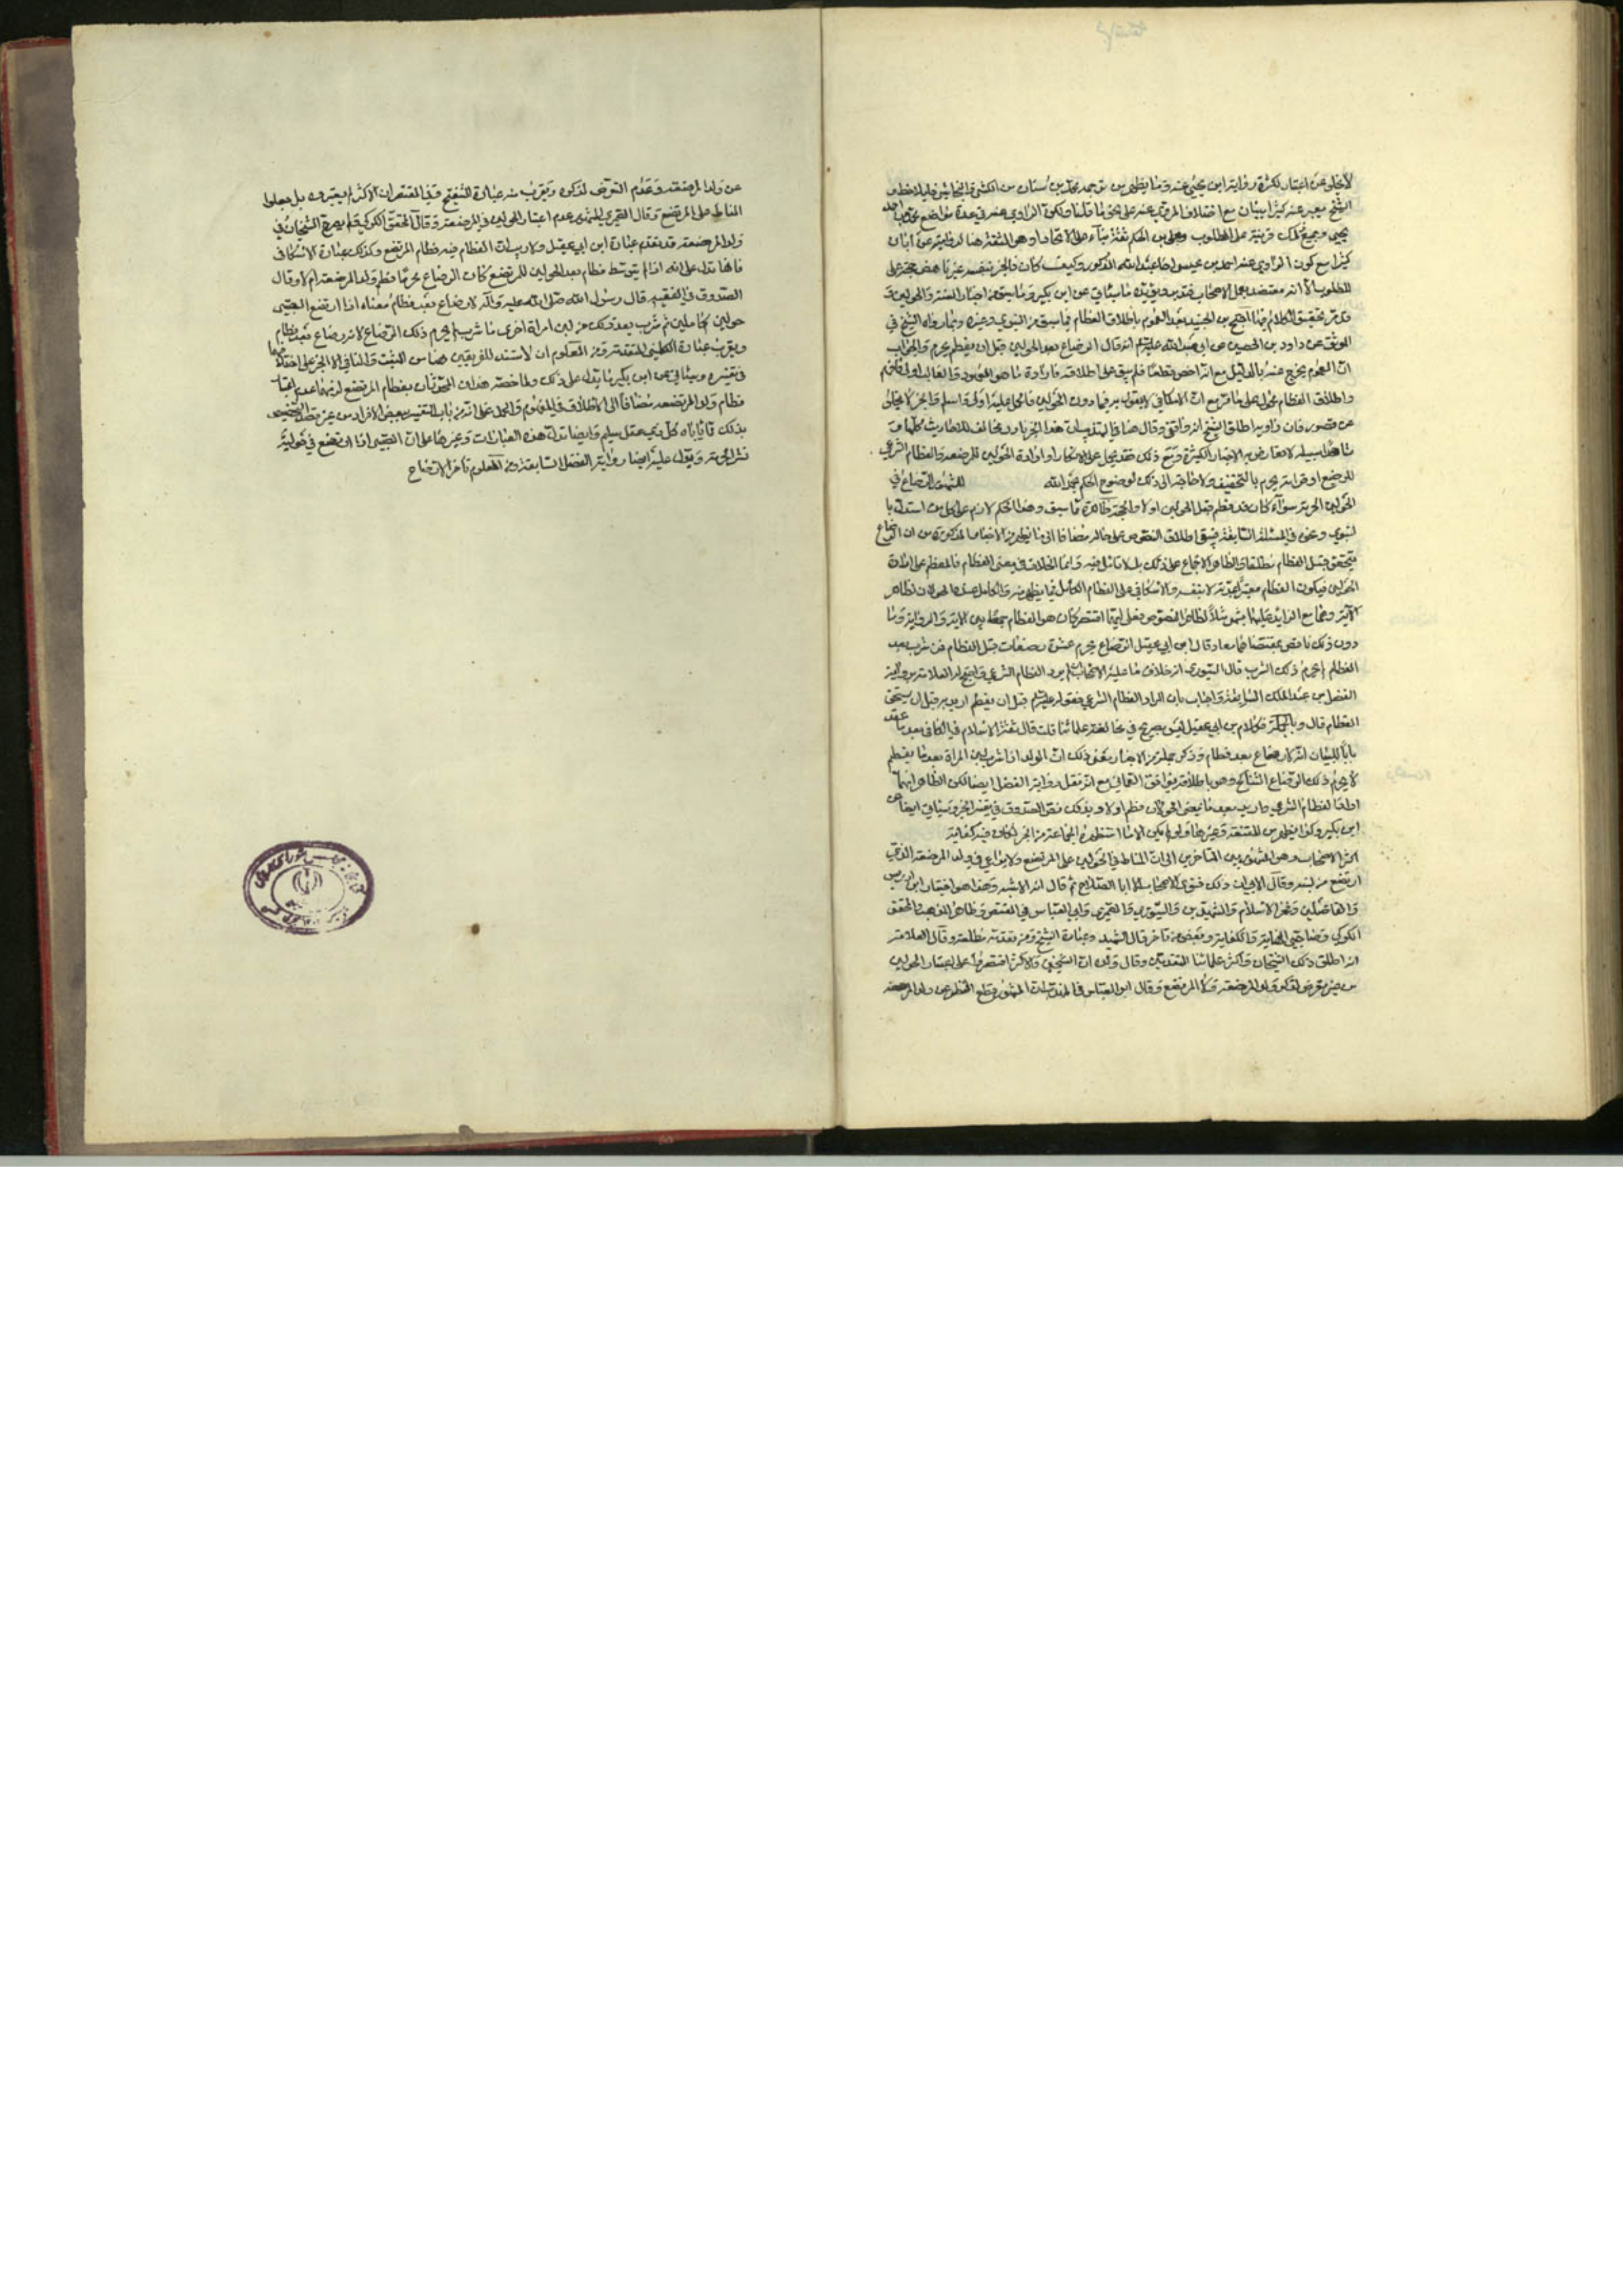 لاخلى عن اعتبار لكثرة رواية ابن يحيى عنه وما يظهر من محمد بن سنان من الكشي والنجاشي
الشيخ يعبر عنه كثيرا ببنان مع اختلاف المروي عنه على نحو ما قلنا ولكون الراوي عنه في عدة مواضع محمد بن
يحيى وجميع ذلك قرينة على المطلوب وعلي بن الحكم ثقة بناء على الاتحاد او هو الثقة هنا لروايته عن ابان
كثيرا مع كون الراوي عنه احمد بن عيسى اخا عبد الله المذكور وكيف كان فالخبر بنفسه
للمطلوب لا انه معتضد بعمل الاصحاب ويؤيده ما سيأتي عن ابن بكير وما سبق من اخبار السنة والحولين و
قد مر تحقيق الكلام احتج ابن الجنيد بعد العموم باطلاق الفطام فيما سبق من النبوي وغيره وبما رواه الشيخ في
الموثق عن داود بن الحصين عن ابي عبد الله عليه السلم انه قال الرضاع بعد الحولين قبل ان يفطم يحرم والجواب
ان العموم يخرج عنه بالدليل مع انه اخص قطعا فلم يبق على اطلاقه فارادة ما هو المعهود والغالب اولى
واطلاق الفطام محمول على ما مر مع ان الاسكافي لا يقول به فيما دون الحولين
عن قصور فان راويه اطلق الشيخ انه واقفي وقال هنا في التهذيب ان هذا الخبر نادر مخالف للاحاديث كلها
ما هذا سبيله لا يعارض به الاخبار الكثيرة ومع ذلك فقد يحمل على الانكار او ارادة الحولين للمرضعة والفطام الشرعي
للرضيع او قراءته يحرم بالتخفيف ولا حاجة الى ذلك لوضوح الحكم بحمد الله للشهور الرضاع في
الحولين الحرمة سواء كان قد فطم قبل الحولين او لا والحجة ظاهرة مما سبق وهذا الحكم لازم على كل من استدل با
لنبوي وغيره في المسئلة السابقة فيبقى اطلاق النصوص على حاله مضافا الى ما يظهر من الاخبار المذكورة من ان الرضاع
يتحقق قبل الفطام مطلقا والظاهر الاجماع على ذلك بلا تأمل فيه وانما الخلاف في معنى الفطام فالمعظم على ارادة
الحولين فيكون الفطام معتبرا بمدته لا بنفسه والاسكافي على الفطام الكامل فيما يظهر منه
الاية وهما مع الزائد عليهما بشهر مثلا لظاهر النصوص فعلى ايهما اقتصر كان هو الفطام جمعا بين الاية والرواية وما
دون ذلك ناقص بمقتضاهما معا وقال ابن ابي عقيل الرضاع يحرم عشرة رضعات قبل الفطام فمن شرب بعد
الفطام لم يحرم ذلك الشرب قال السيوري انه خلاف ما عليه الاصحاب ان لم يرد الفطام الشرعي واحتج له العلامة برواية
الفضل بن عبد الملك السابقة واجاب بان المراد الفطام الشرعي فقوله عليه السلم قبل ان يفطم اريد به قبل ان يستحق
الفطام قال وبالجملة فكلام ابن ابي عقيل ليس بصريح في مخالفة علمائنا قلت قال ثقة الاسلام في الكافي بعد ما عقد
بابا لبيان انه لا رضاع بعد فطام وذكر جملة من الاخبار معنى ذلك ان الولد اذا شرب لبن المراة بعد ما يفطم
لا يحرم ذلك الرضاع التناكح وهو باطلاقه يوافق العماني مع انه نقل رواية الفضل ايضا لكن الظاهر انهما
ارادا الفطام الشرعي واريد بعد ما يمضي الحولان فطم او لا وبذلك نص الصدوق في تفسير الخبر وسيأتي ايضا عن
ابن بكير وكذا يظهر من المقنعة وغيرها ولو لم يكن الا ما استظهره الجماعة من الخبر لكان فيه كفاية
اكثر الاصحاب وهو المشهور بين المتاخرين الى ان المناط في الحولين على المرتضع ولا يراعى في ولد المرضعة الذي
ارتضع من لبنه وقال الابي ان ذلك فتوى الاصحاب الا ابا الصلاح ثم قال انه الاشبه وهذا هو اختيار ابن ادريس
والفاضلين وفخر الاسلام والشهيدين والسيوري والصيمري وابي العباس في المقتصر وظاهر المهذب والمحقق
الكركي وصاحبي الهداية والكفاية وبعض من تاخر قال الشهيد وعبارة الشيخ ومن تقدمه مطلقة وقال العلامة
انه اطلق ذلك الشيخان واكثر علمائنا المتقدمين وقال ولده ان الشيخين والاكثر اقتصروا على اعتبار الحولين
من غير تعرض لكونه ولد المرضعة او المرتضع وقال ابو العباس في المهذب ان المشهور قطع النظر عن ولد المرضعة
عن ولد المرضعة وعدم التعرض لذكره ويقرب منه عبارة التنقيح وفي المقتصر ان الاكثر لم يعتبروه بل جعلوا
المناط على المرتضع وقال الصيمري المشهور عدم اعتبار الحولين في المرضعة وقال المحقق الكركي لم يصرح الشيخان في
ولد المرضعة قد تقدم عبارة ابن ابي عقيل ولا ريب ان الفطام فيه فطام المرتضع وكذلك عبارة الاسكافي
فانها تدل على انه اذا لم يتوسط فطام بعد الحولين للمرتضع كان الرضاع محرما فطم ولد المرضعة ام لا وقال
الصدوق في الفقيه قال رسول الله صلى الله عليه واله لا رضاع بعد فطام معناه اذا ارتضع الصبي
حولين كاملين ثم شرب بعد ذلك من لبن امراة اخرى ما شرب لم يحرم ذلك الرضاع لانه رضاع بعد فطام
ويقرب عبارة الكليني المتقدمة ومن المعلوم ان لا مستند للفريقين هنا من المثبت والنافي الا الخبر على اختلافهما
في تفسيره وسيأتي عن ابن بكير ما يدل على ذلك ولما خصه هذان المحدثان بفطام المرتضع لزمهما عدم اعتبار
فطام ولد المرضعة مضافا الى الاطلاق في المفهوم والحمل على انه من باب التفسير ببعض الافراد من غير قصد التخصيص
بذلك مما يأباه كل ذي عقل سليم وايضا تدل هذه العبارات وغيرها على ان الصبي اذا ارتضع في حوليه
نشر الحرمة ويدل عليه ايضا رواية الفضل السابقة ومن المعلوم تأخر الارتضاع